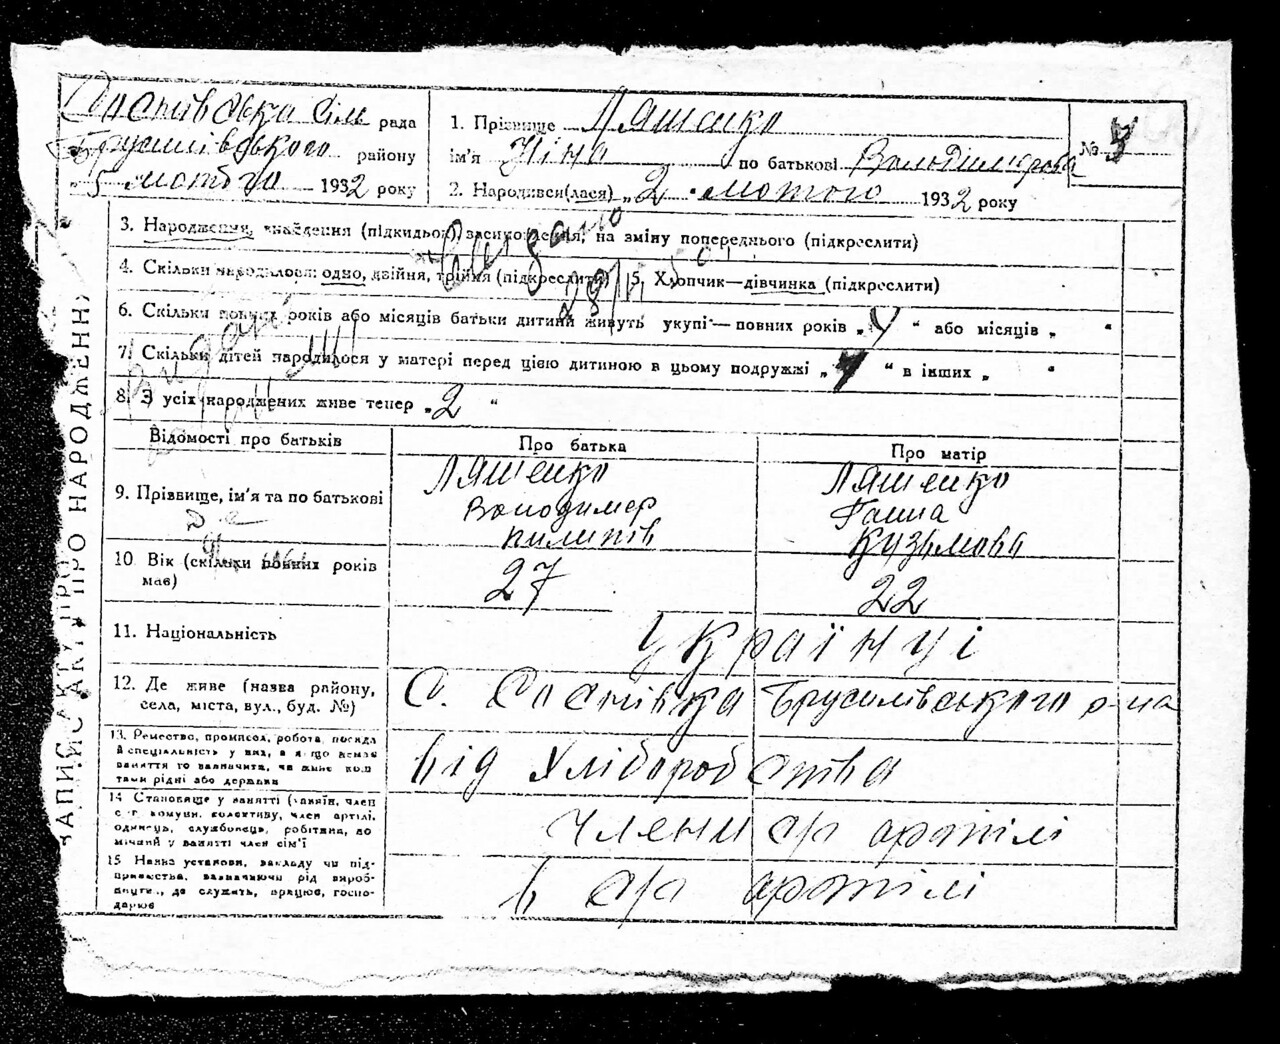 рада
Брусилівського району
5 лютого 1932 року
1. Прізвище Ляшенко
ім'я Ніна по батькові Володимирова
№
2. Народився(лася) „2 лютого 1932 року
3. Народження, знайдення (підкидьок) на зміну попереднього (підкреслити)
4. Скільки народилося: одно, двійня, трійня (підкреслити) 5. Хлопчик—дівчинка (підкреслити)
6. Скільки повних років або місяців батьки дитини живуть укупі — повних років „ “ або місяців „ “
7. Скільки дітей народилося у матері перед цією дитиною в цьому подружжі „ “ в інших „ “
8. З усіх народжених живе тепер „2 “
ЗАПИС АКТУ ПРО НАРОДЖЕННЯ
Відомості про батьків
Про батька
Про матір
9. Прізвище, ім'я та по батькові
Ляшенко
Володимер
Пилипів
Ляшенко
Ганна
Кузьмова
10 Вік (скільки повних років
має)
27
22
11. Національність
Українці
12. Де живе (назва району,
села, міста, вул., буд. №)
С. Соснівка Брусилівського р-на
13. Ремество, промисел, робота, посада
й спеціальність у них, а якщо немає
заняття то зазначити, чи живе кош
тами рідні або держави
від хліборобства
14 Становище у занятті (хазяїн, член
с.-г. комуни, колективу, член артілі,
одинець, службовець, робітник, до
мічний у занятті член сім'ї
члени с/г артілі
15 Назва установи, закладу чи під-
приємства, зазначаючи рід вироб-
ництв, де служить, працює, госпо-
дарює
в с/г артілі